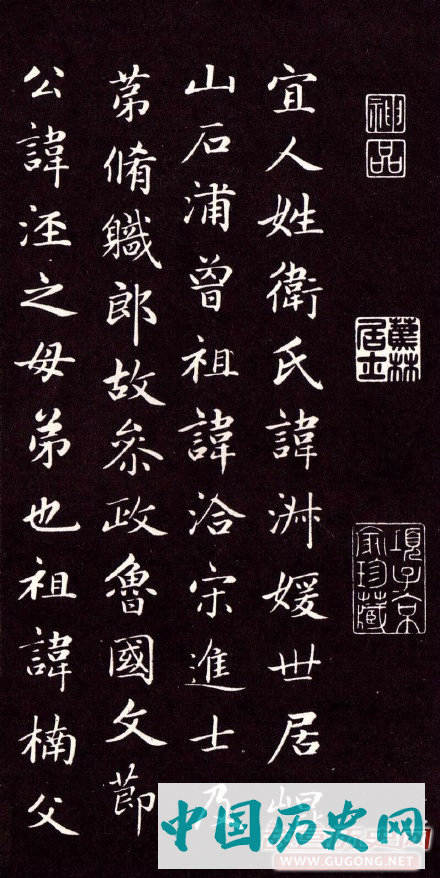 神品
蕉林居士
項子京家珍藏
宜人姓衛氏諱淑媛世居
山石浦曾祖諱洽宋進士乃
苐脩職郎故叅政魯國文節
公諱涇之母弟也祖諱楠父
中国历史网
WWW.GUGONG.NET